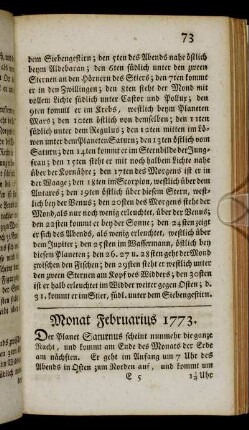 73
dem Siebengestirn; den 5ten des Abends nahe östlich
beym Aldebaran; den 6ten südlich unter den zween
Sternen an den Hörnern des Stiers; den 7ten kommt
er in den Zwillingen; den 8ten steht der Mond mit
vollem Lichte südlich unter Castor und Pollux; den
9ten kommt er im Krebs, westlich beym Planeten
Mars; den 10ten östlich von demselben; den 11ten
südlich unter dem Regulus; den 12ten mitten im Lö-
wen unter dem Planeten Saturn; den 13ten östlich vom
Saturn; den 14ten kommt er im Sternbilde der Jung-
frau; den 15ten steht er mit noch halbem Lichte nahe
über der Kornähre; den 17ten des Morgens ist er in
der Waage; den 18ten im Scorpion, westlich über dem
Antares; den 19ten östlich über diesem Stern, west-
lich bey der Venus; den 20sten des Morgens steht der
Mond, als nur noch wenig erleuchtet, über der Venus;
den 22sten kommt er bey der Sonne; den 24sten zeigt
er sich des Abends, als wenig erleuchtet, westlich
über dem Jupiter; den 25sten im Wassermann, östlich bey
diesem Planeten; den 26. 27 u. 28sten geht der Mond
zwischen den Fischen; den 29sten steht er westlich unter
den zween Sternen am Kopf des Widders; den 30sten
ist er halb erleuchtet im Widder weiter gegen Osten; d.
31. kommt er im Stier, südl. unter dem Siebengestirn.
Monat Februarius 1773.
Der Planet Saturnus scheint nunmehr die ganze
Nacht, und kommt am Ende des Monats der Erde
am nächsten. Er geht im Anfang um 7 Uhr des
Abends in Osten zum Norden auf, und kommt um
E 5 Uhr